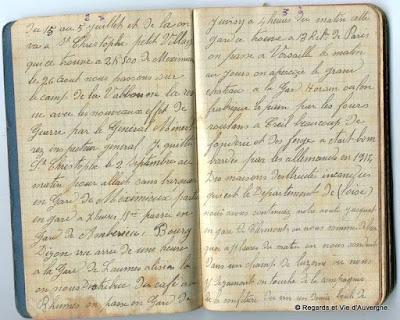 du 15 au 5 juillet et de la on
va a St Christophe petit Village
qui ce trouve a 2 K 500 de Meximieux
le 26 Aout nous passons sur
le camp de la Valbonne la re
vue avec les nouveaux effet de
Guerre par le General
res inspecteur general Je quitte
St Christophe le 2 Septembre au
matin pour allait
en Gare de Meximieux parti
en gare a 2 heures passe en
Gare de Amberieu Bourg
Dijon une arret de une heure
a la Gare de Laumes Alesia la
on nous distribue du café au
Rhumes on passe en Gare de
Juvisy a 4 heures du matin cette
Gare ce trouve a K de Paris
on passe a Versaille le matin
au jours on aperçoit le grand
chateau a la Gare
fabrique le par les fours
roulans a Creil beaucoup de
fonderie et des forge a etait bom
barder par les allemands en 1915
Des maisons detruite incendier
qui est le Departement de (Loise)
nous avons continuer notre route jusquau
en gare de Clermont ou nous somme
quer a heures du matin on nous conduit
dans un champ de luzerne ou nous
y on touche de la campagne
de la confiture du vin un demie boule de
© Regards et Vie d'Auvergne.